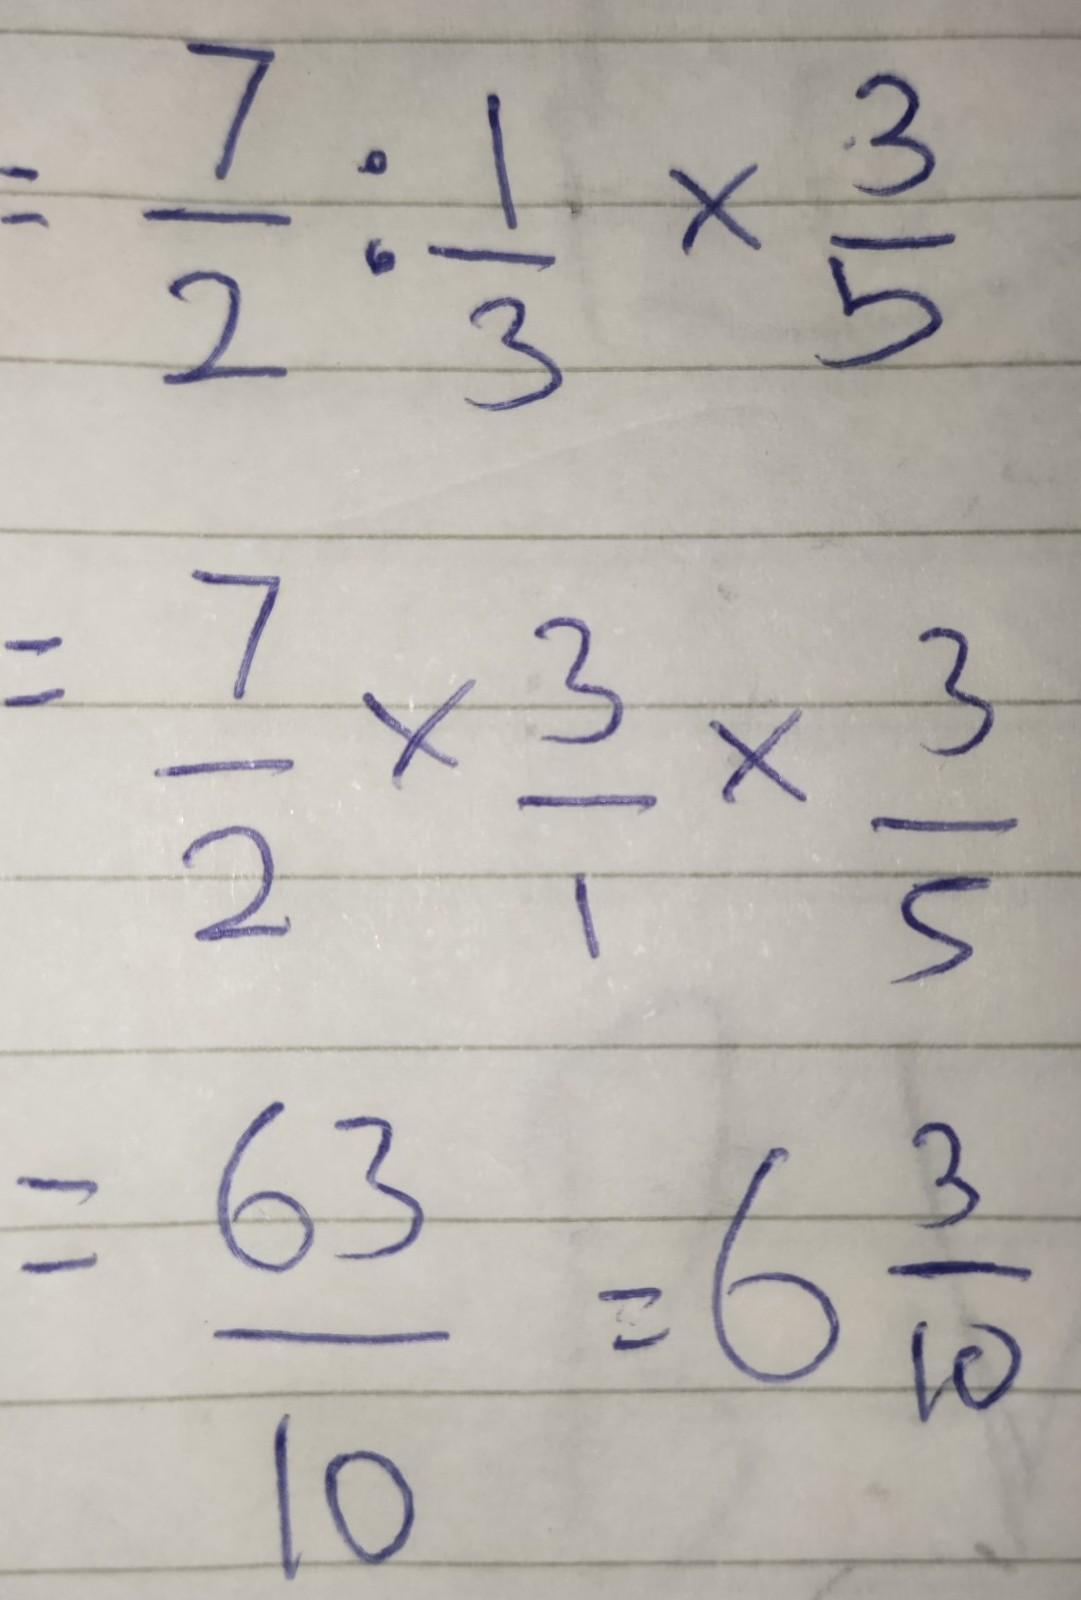 = 7/2 : 1/3 × 3/5
= 7/2 × 3/1 × 3/5
= 63/10 = 6 3/10